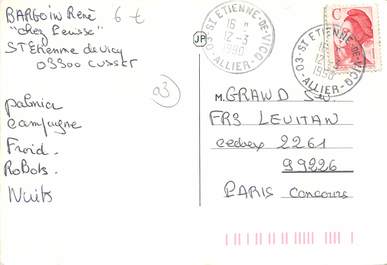 BARGOIN René
"chez Peusse"
ST Etienne de Vicq
03300 CUSSET
6 €
03
palmier
Campagne
Froid.
Robots.
Nuits
JP
03-ST ETIENNE-DE-VICQ
16 H
12-3
1990
ALLIER
03-ST ETIENNE-DE-VICQ
16
12-3
1990
ALLIER
C
M. GRAWD
FR3 LEVITAN
cedex 2261
99226
PARIS Concours